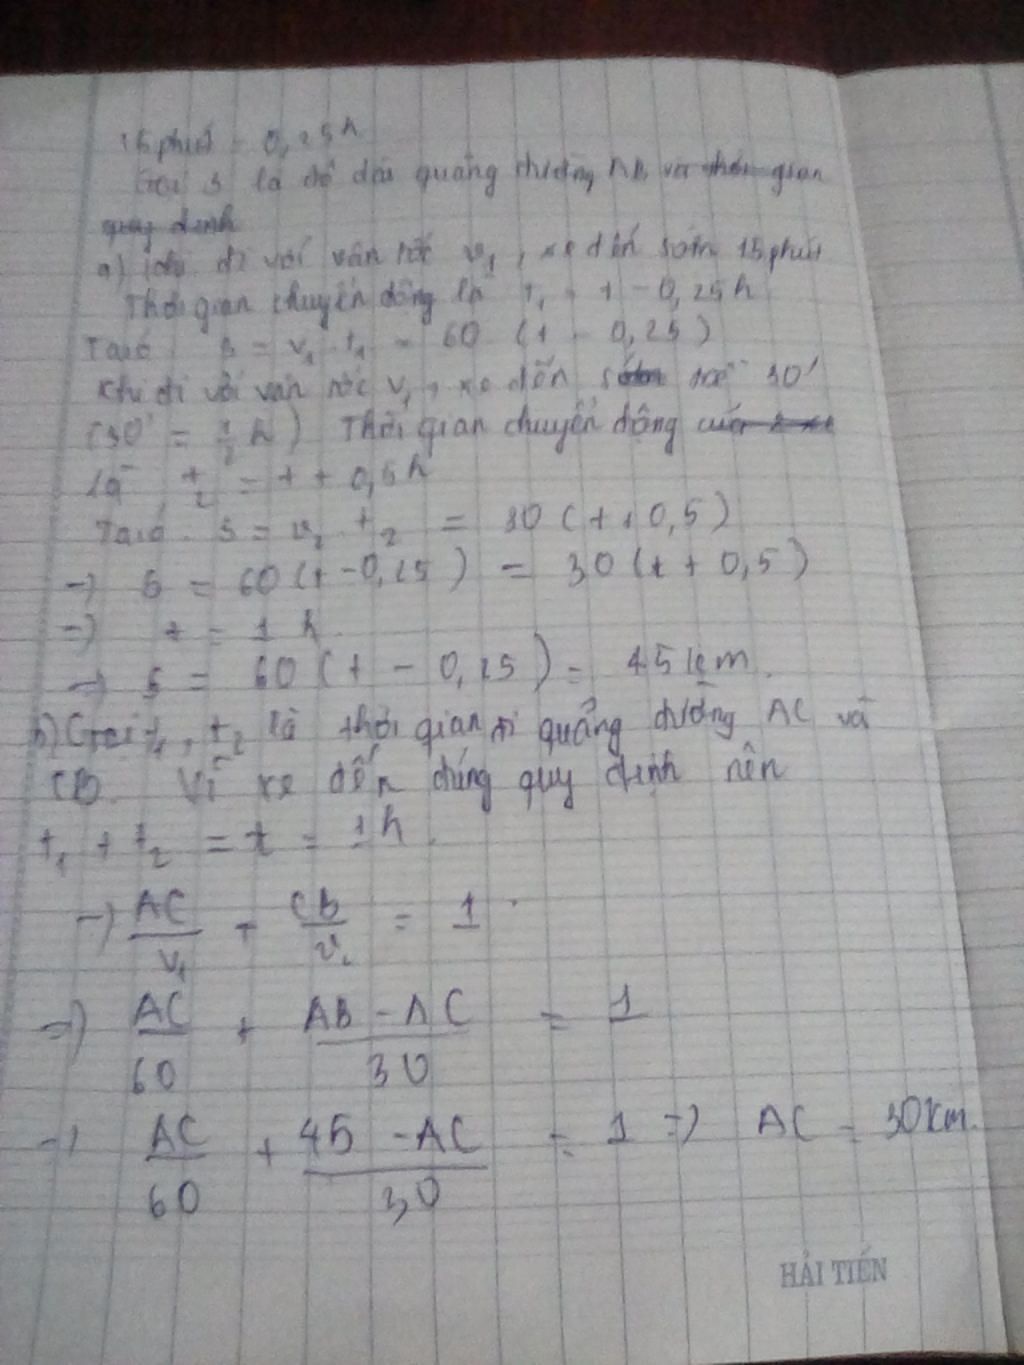 15 phút = 0,25h
Gọi s là độ dài quãng đường AB, và thời gian
quy định
a) khi đi với vận tốc v1, xe đến sớm 15 phút
Thời gian chuyển động là t1 = t - 0,25h
Ta có s = v1 . t1 = 60 (t - 0,25)
Khi đi với vận tốc v1, xe đến sớm trễ 30'
(30' = 1/2 h) Thời gian chuyển động
là t2 = t + 0,5h
Ta có s = v2 . t2 = 30 (t + 0,5)
=> s = 60 (t - 0,25) = 30 (t + 0,5)
=> t = 1 h
=> s = 60 (t - 0,25) = 45 km.
b) Gọi t1, t2 là thời gian đi quảng đường AC và
CB. Vì xe đến đúng quy định nên
t1 + t2 = t = 1h.
=> AC/v1 + CB/v2 = 1
=> AC/60 + AB - AC/30 = 1
=> AC/60 + 45 - AC/30 = 1 => AC = 30km.
HẢI TIẾN